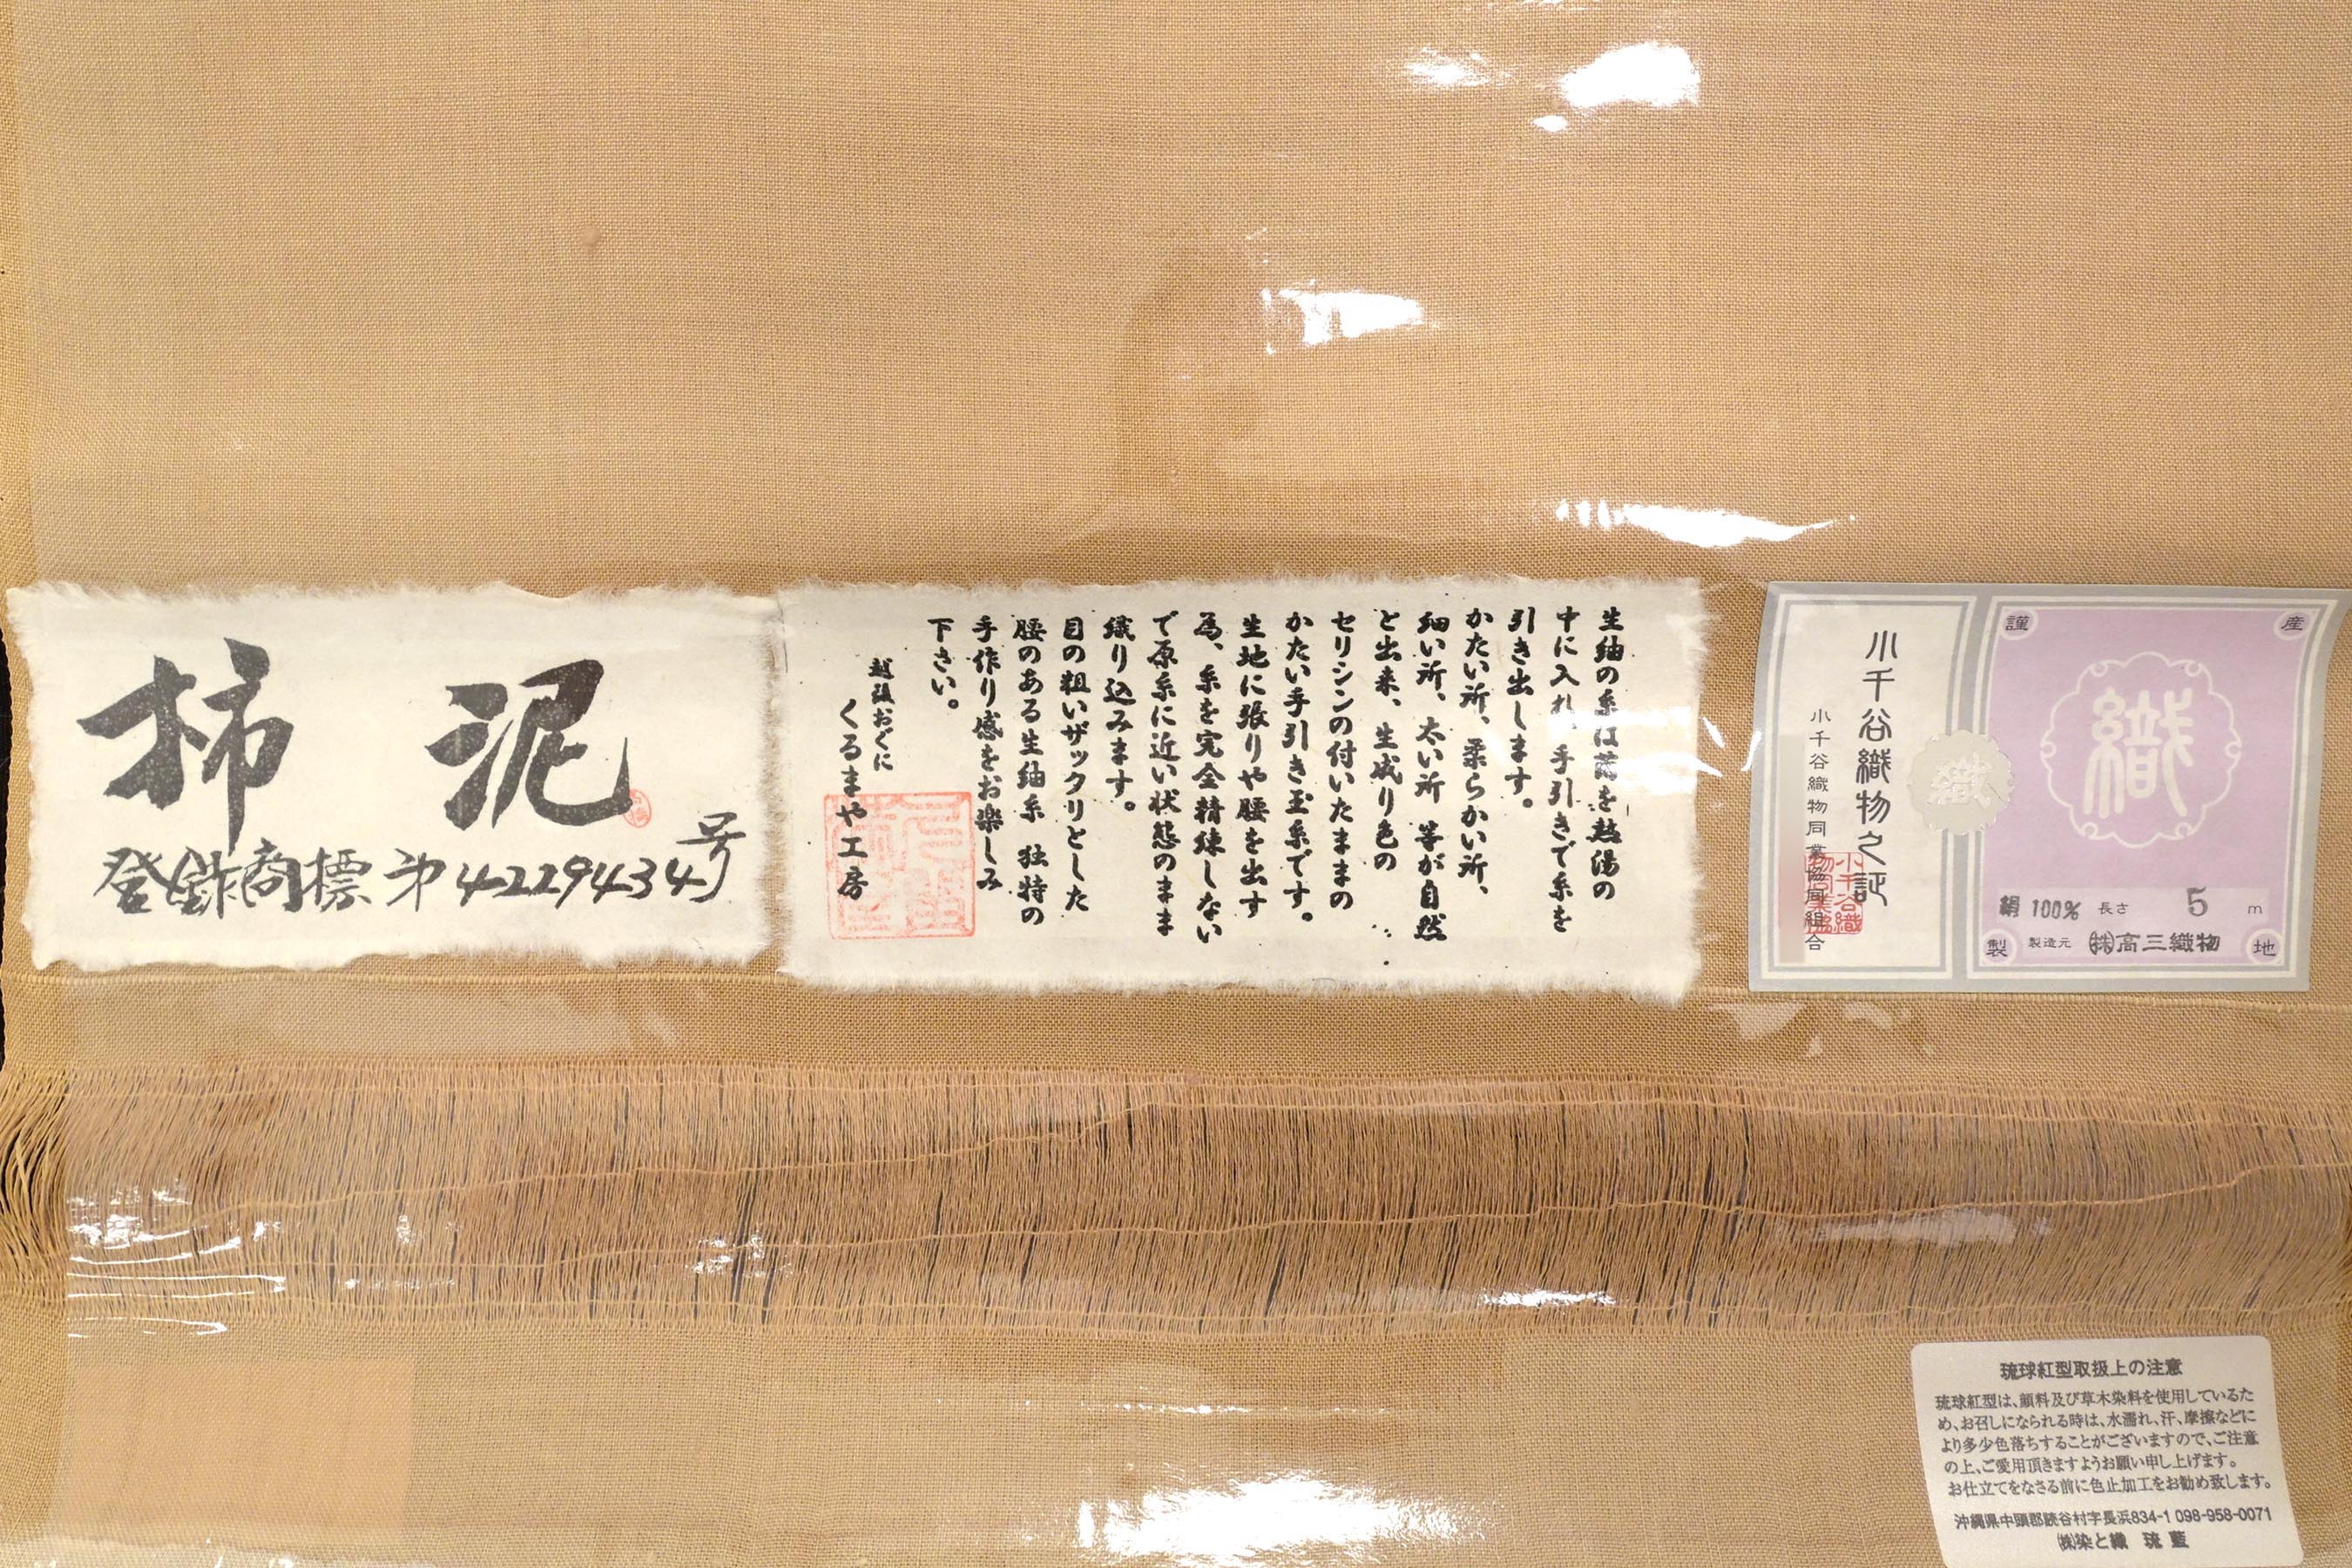 柿泥
登録商標 第4229434号
生紬の糸は繭を熱湯の
中に入れ、手引きで糸を
引き出します。
かたい所、柔らかい所、
細い所、太い所 等が自然
と出来、生成り色の
セリシンの付いたままの
かたい手引き玉糸です。
生地に張りや腰を出す
為、糸を完全精練しない
で原糸に近い状態のまま
織り込みます。
目の粗いザックリとした
腰のある生紬糸 独特の
手作り感をお楽しみ
下さい。
越後おぐに
くるまや工房
小千谷織物之証
小千谷織物同業協同組合
織
謹
産
織
絹 100% 長さ 5 m
製
製造元 ㈱高三織物
地
琉球紅型取扱上の注意
琉球紅型は、顔料及び草木染料を使用しているた
め、お召しになられる時は、水濡れ、汗、摩擦などに
より多少色落ちすることがございますので、ご注意
の上、ご愛用頂きますようお願い申し上げます。
お仕立てをなさる前に色止加工をお勧め致します。
沖縄県中頭郡読谷村字長浜834-1 098-958-0071
㈱染と織 琉藍